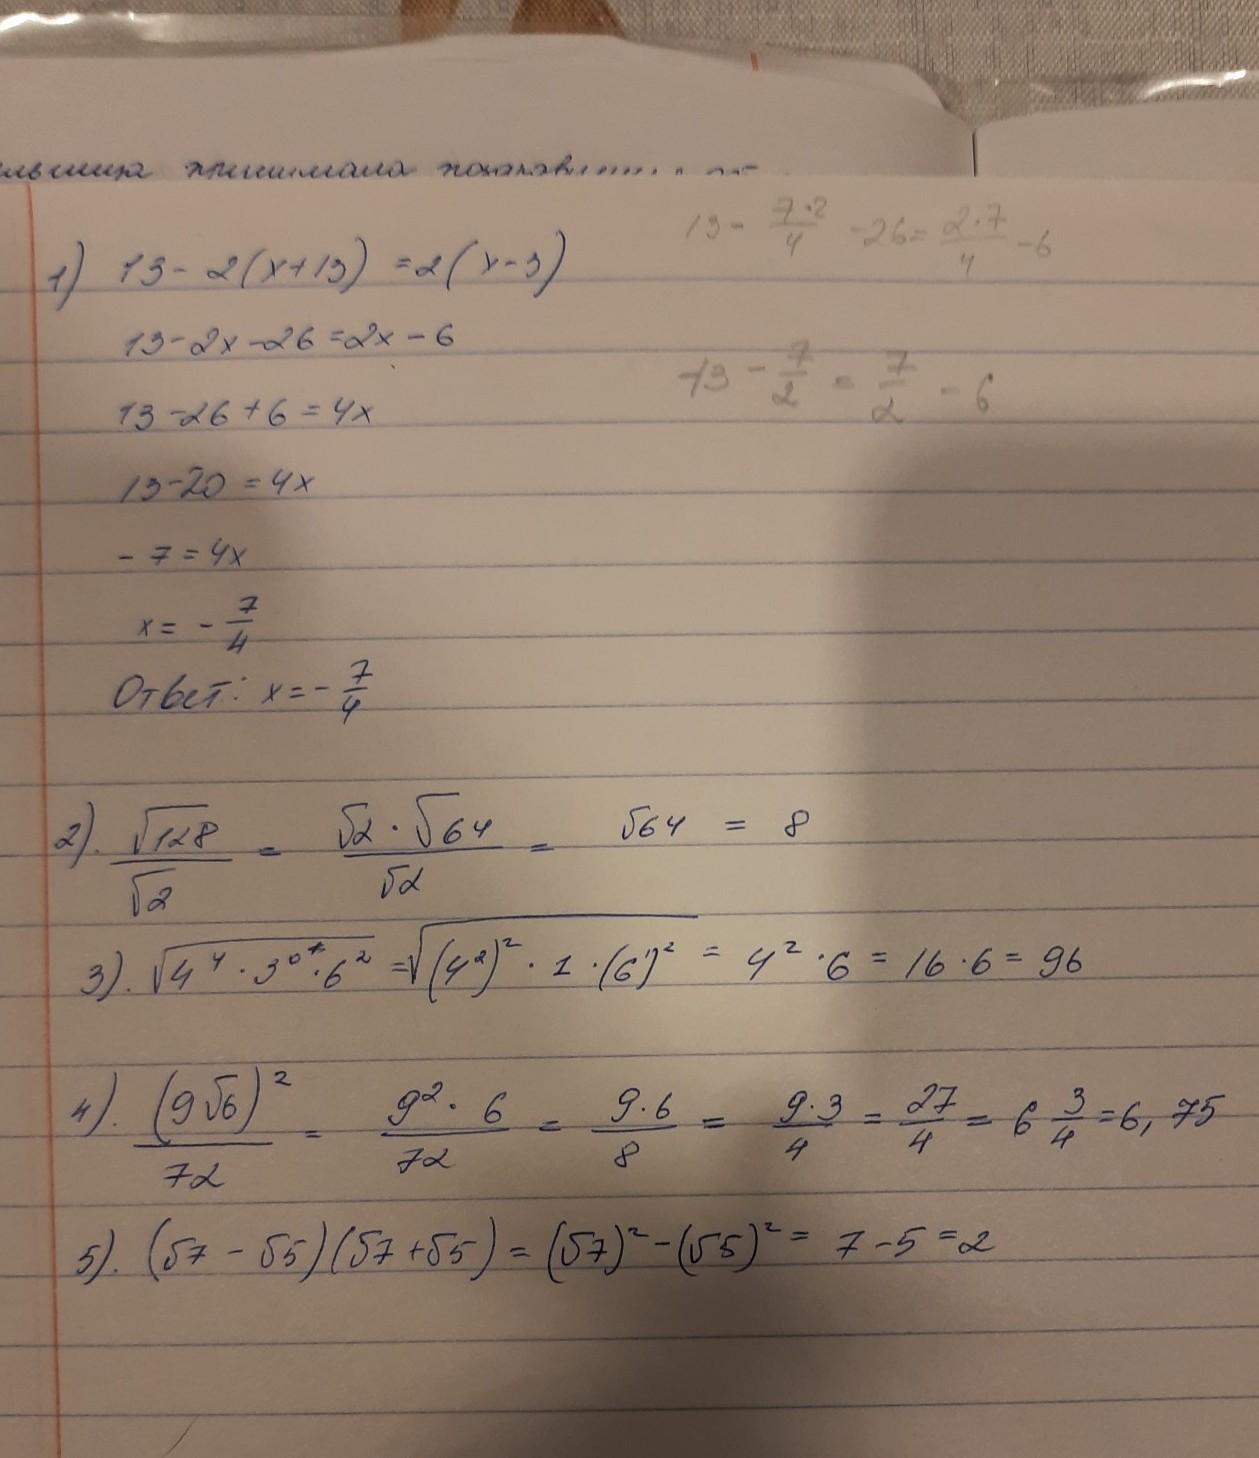 принимала
1) 13 - 2(x+13) = 2(x-3)
13-2x-26=2x-6
13-26+6=4x
13-20=4x
-7=4x
x= -7/4
Ответ: x=-7/4
13- 7·2/4 -26= 2·7/4 -6
-13 - 7/2 = 7/2 - 6
2). √128/√2 = √2·√64/√2 = √64 = 8
3). √(4⁴·3⁰·6²) =√((4²)²·1·(6¹)²) = 4²·6 = 16·6 = 96
4). (9√6)²/72 = 9²·6/72 = 9·6/8 = 9·3/4 = 27/4 = 6 3/4 =6,75
5). (√7 - √5)(√7+√5) = (√7)²-(√5)²= 7-5=2